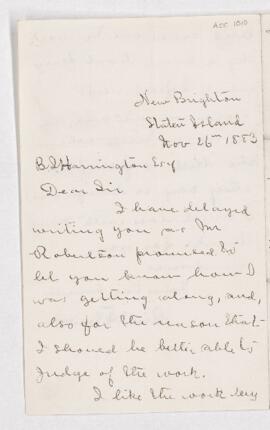 ACC 1010
New Brighton
Staten Island
Nov 26th 1883
B J Harrington Esq
Dear Sir
I have delayed
writing you as Mr
Robertson promised to
let you know how I
was getting along, and,
also for the reason that
I should be better able to
Judge of the work.
I like the work very